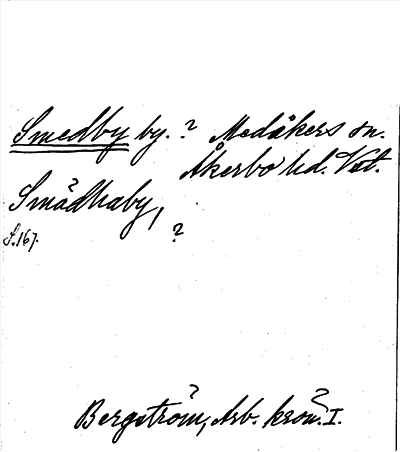 Smedby by. ? Medåkers sn.
Åkerbo hd. Vst.
Smådhaby,
S. 167. ?
Bergström, Arb. krön. I.